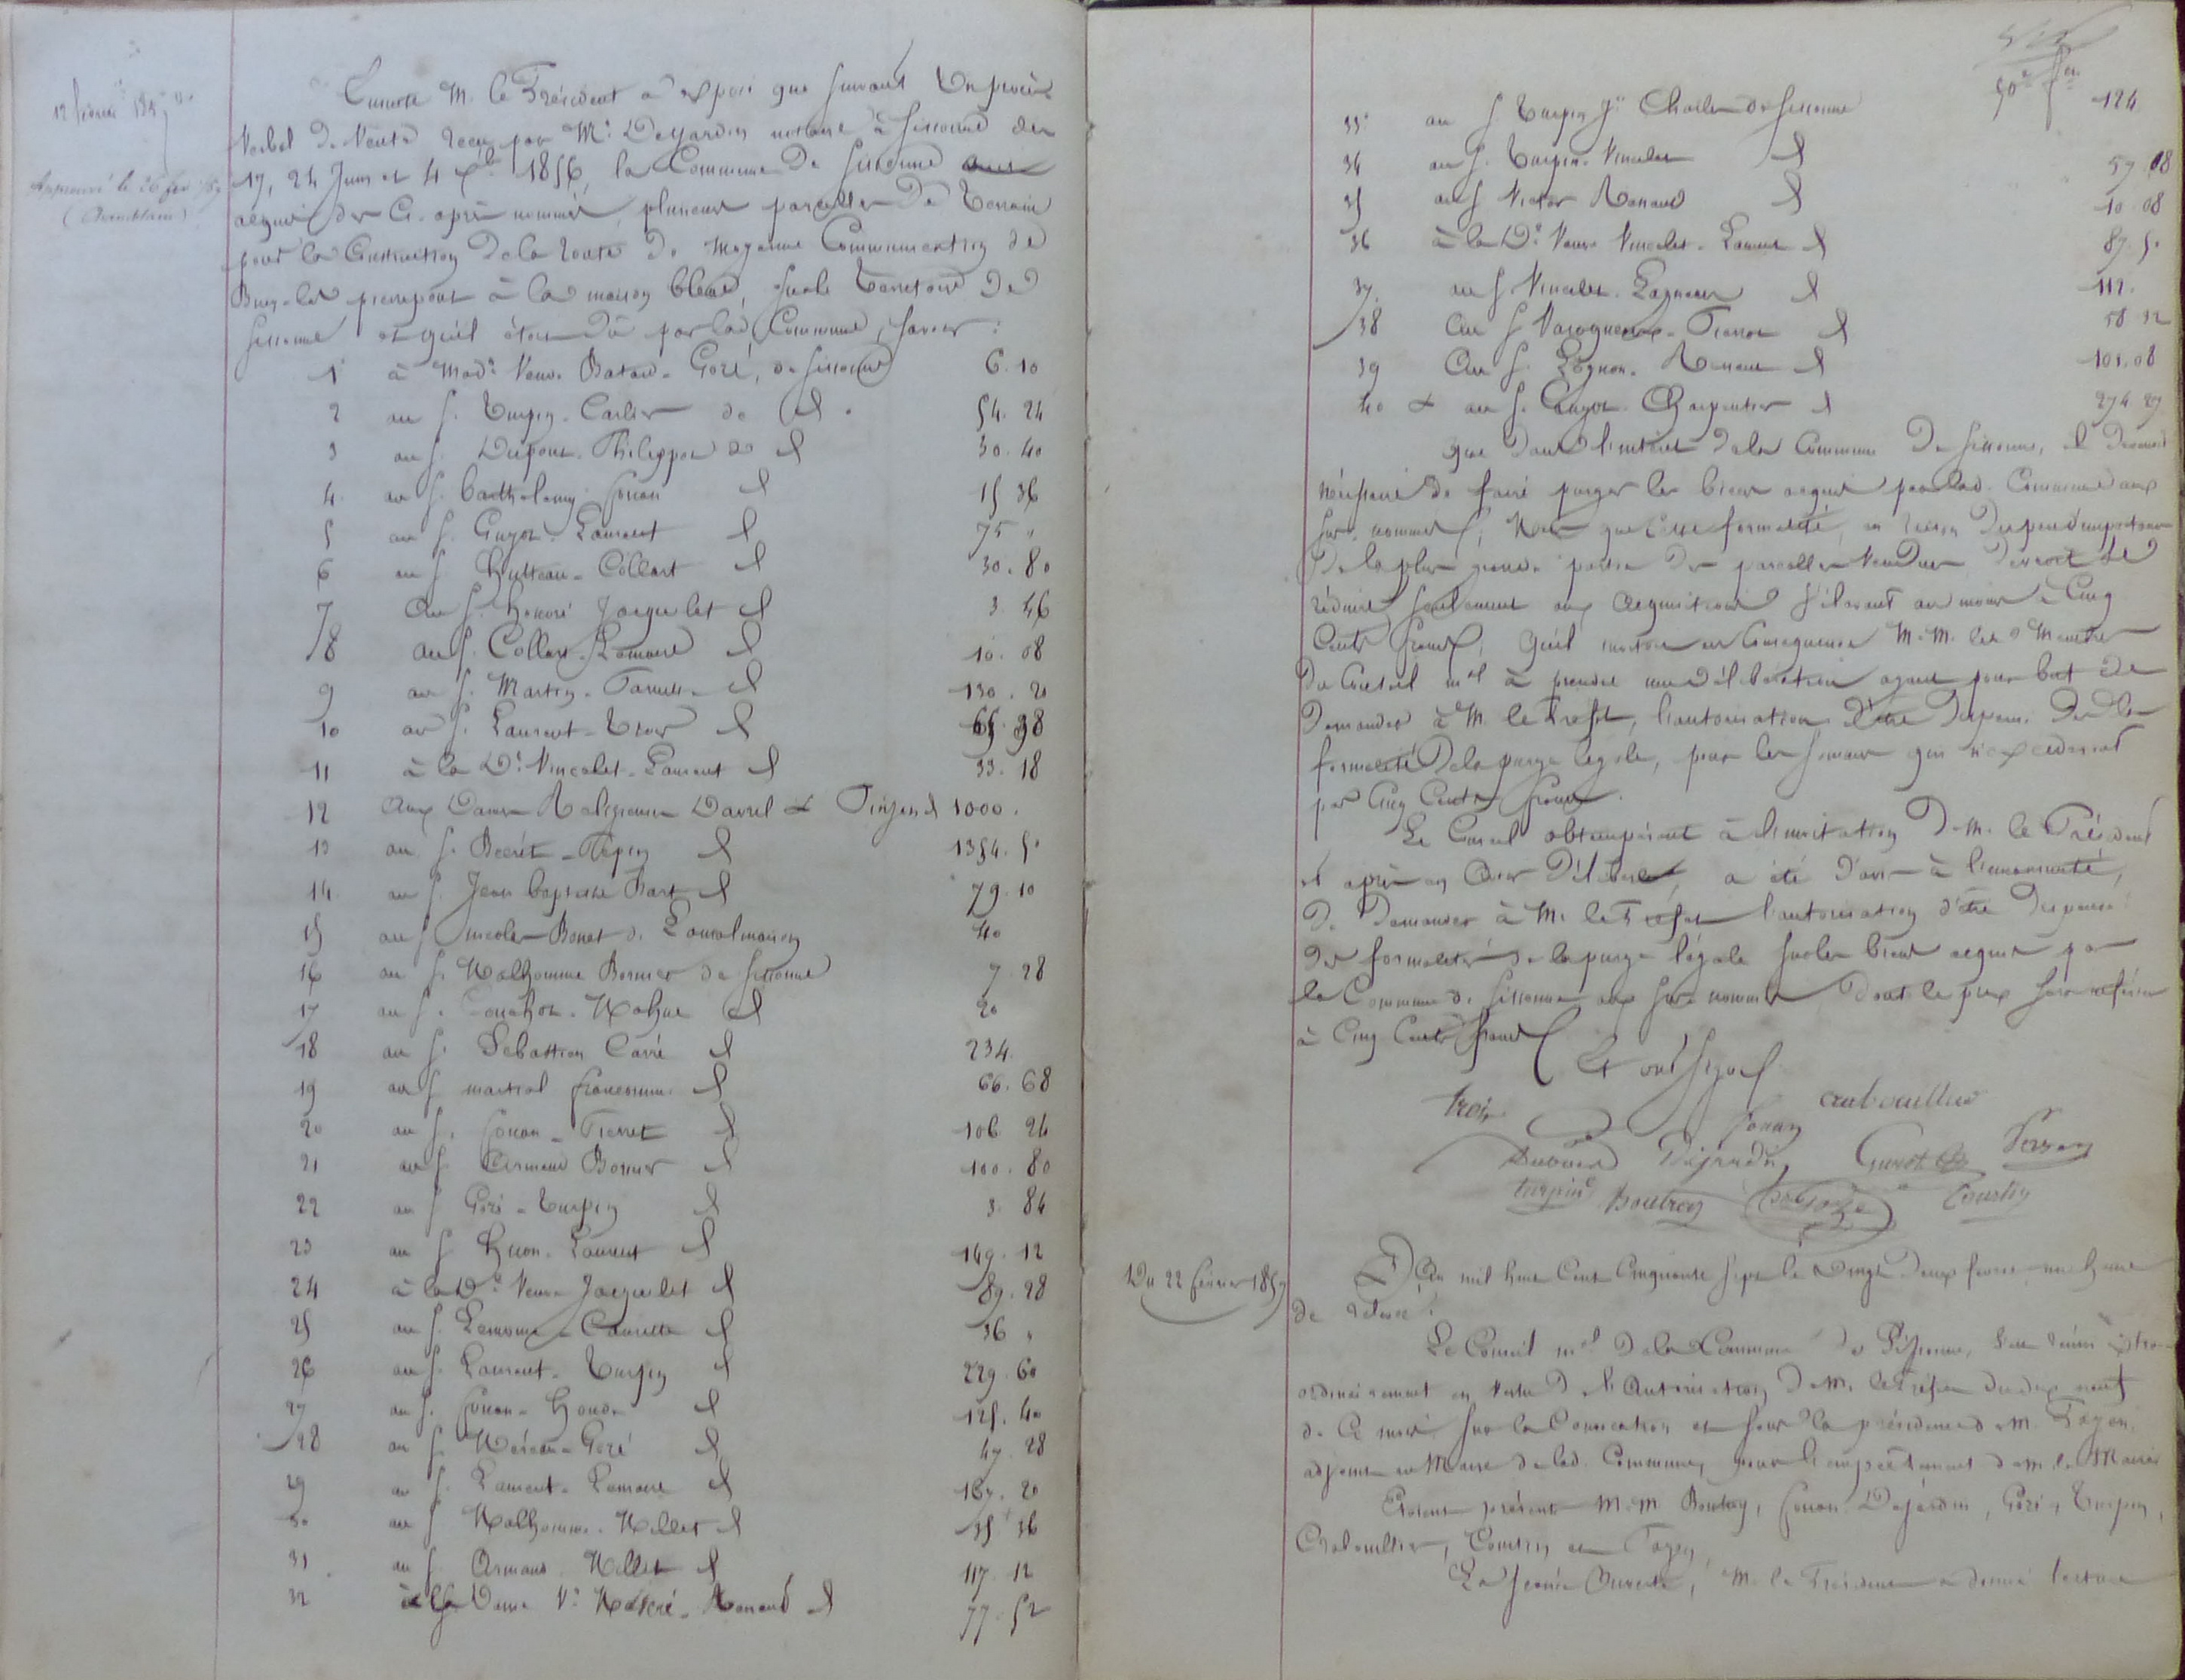 12 février 1857
Approuvé le 26 fev 1857
Ensuite M. le Président a exposé que suivant Un procès
Verbal de Vente reçu par Me Desjardin notaire à Sissonne des
17, 24 Juin et 4 1856, la Commune de Sissonne
acquis des Ci-après nommés, plusieurs parcelles de Terrain
pour la Construction de la route de moyenne Communication de
pierrepont à la maison bleue, sur le Territoire de
Sissonne et qu'il étoit dû par lad. Commune, Savoir :
1° à Made Veuve Batard-Goré, de Sissonne 6. 10
2 au S. Turpin-Carlier de d 54. 24
3 au S. Dupont-Philippot de d 30. 40
4 au S. barthelemy fouan d 15 36
5 au S. Guyot-Laurent d 75 "
6 au S. Hutteau-Collart d 30. 80
7 au S. honoré Jacquelet d 3. 46
8 au S. Collart-Lemaire d 10. 08
9 au S. Martin- d 130. 20
10 au S. Laurent- d 65. 98
11 à la De Vincelet-Laurent d 33. 18
12 Aux Dames Religieuses Davril & d 1000.
13 au S. d 1354. 50
14 au S. Jean baptiste Bart d 79. 10
15 au S. nicolas Bonat de 40
16 au S. Malhomme Bonnier de Sissonne 7. 28
17 au S. Mahue d 20
18 au S. Sébastien Carré d 234.
19 au S. martial d 66. 68
20 au S. fouan-Pierret d 106 24
21 au S. Armand Bonnier d 100. 80
22 au S. Goré-Turpin d 3. 84
23 au S. Huon-Laurent d 149. 12
24 à la De Veuve Jacquelet d 89. 28
25 au S. Lemoine- d 36 "
26 au S. Laurent-Turpin d 229. 60
27 au S. fouan- d 125. 40
28 au S. -Goré d 47. 28
29 au S. Laurent-Lemaire d 167. 20
30 au S. Malhomme-Millet d 35 36
31 au S. Armand Millet d 117. 12
32 à la Dame Ve Renaud d 77. 52
50e fet
33° au S. Turpin Je Charles de Sissonne 124
34 au S. Turpin-Vincelet d 57. 08
35 au S. Victor Renaud d 10. 08
36 à la De Veuve Vincelet-Laurent d 87. 50
37 au S. Vincelet-Lagneaux d 112.
38 au S. -Pierret d 58 32
39 Au S. Lognon-Renaud d 101. 08
40 & au S. Guyot-Charpentier d 274 27
que dans l'intérêt de la Commune de Sissonne, il devenait
nécessaire de faire purger les biens acquis par lad. Commune aux
sus nommés, Mais que Cette formalité, en raison du peu d'importance
de la plus grande partie des parcelles Vendues devroit se
réduire seulement aux acquisitions s'élevant au moins à Cinq
Cents francs, qu'il invitoit en Conséquence M.M. les Membres
du Conseil mal à prendre une délibération ayant pour but de
demander à M. le Préfet, l'autorisation d'être dispensé des
formalités de la purge légale, pour les sommes qui n'excéderaient
pas Cinq Cents francs.
Le Conseil obtempérant à l'invitation de M. le Président
et après en avoir délibéré, a été d'avis à l'unanimité,
De demander à M. le Préfet l'autorisation d'être dispensé
des formalités de la purge légale sur les biens acquis par
la Commune de Sissonne aux sus nommés dont le prix sera inférieur
à Cinq Cents francs.
Et ont signé
fouan
Dubois Dejardin Guyot
turpin Boutroy Goré Courtin
Du 22 février 1857
L'An mil huit Cent Cinquante Sept le Vingt deux février une heure
de relevée.
Le Conseil mal de la Commune de Sissonne, s'est réuni extra-
ordinairement en Vertu de l'Autorisation de M. le Préfet du dix neuf
de Ce mois, sur la Convocation et sous la présidence de M.
adjoint au Maire de lad. Commune, pour l'empêchement de M. le Maire
Etoient présents M.M. Boutroy, fouan, Dejardin, Goré, Turpin,
Courtin et
La Séance Ouverte, M. le Président a donné lecture